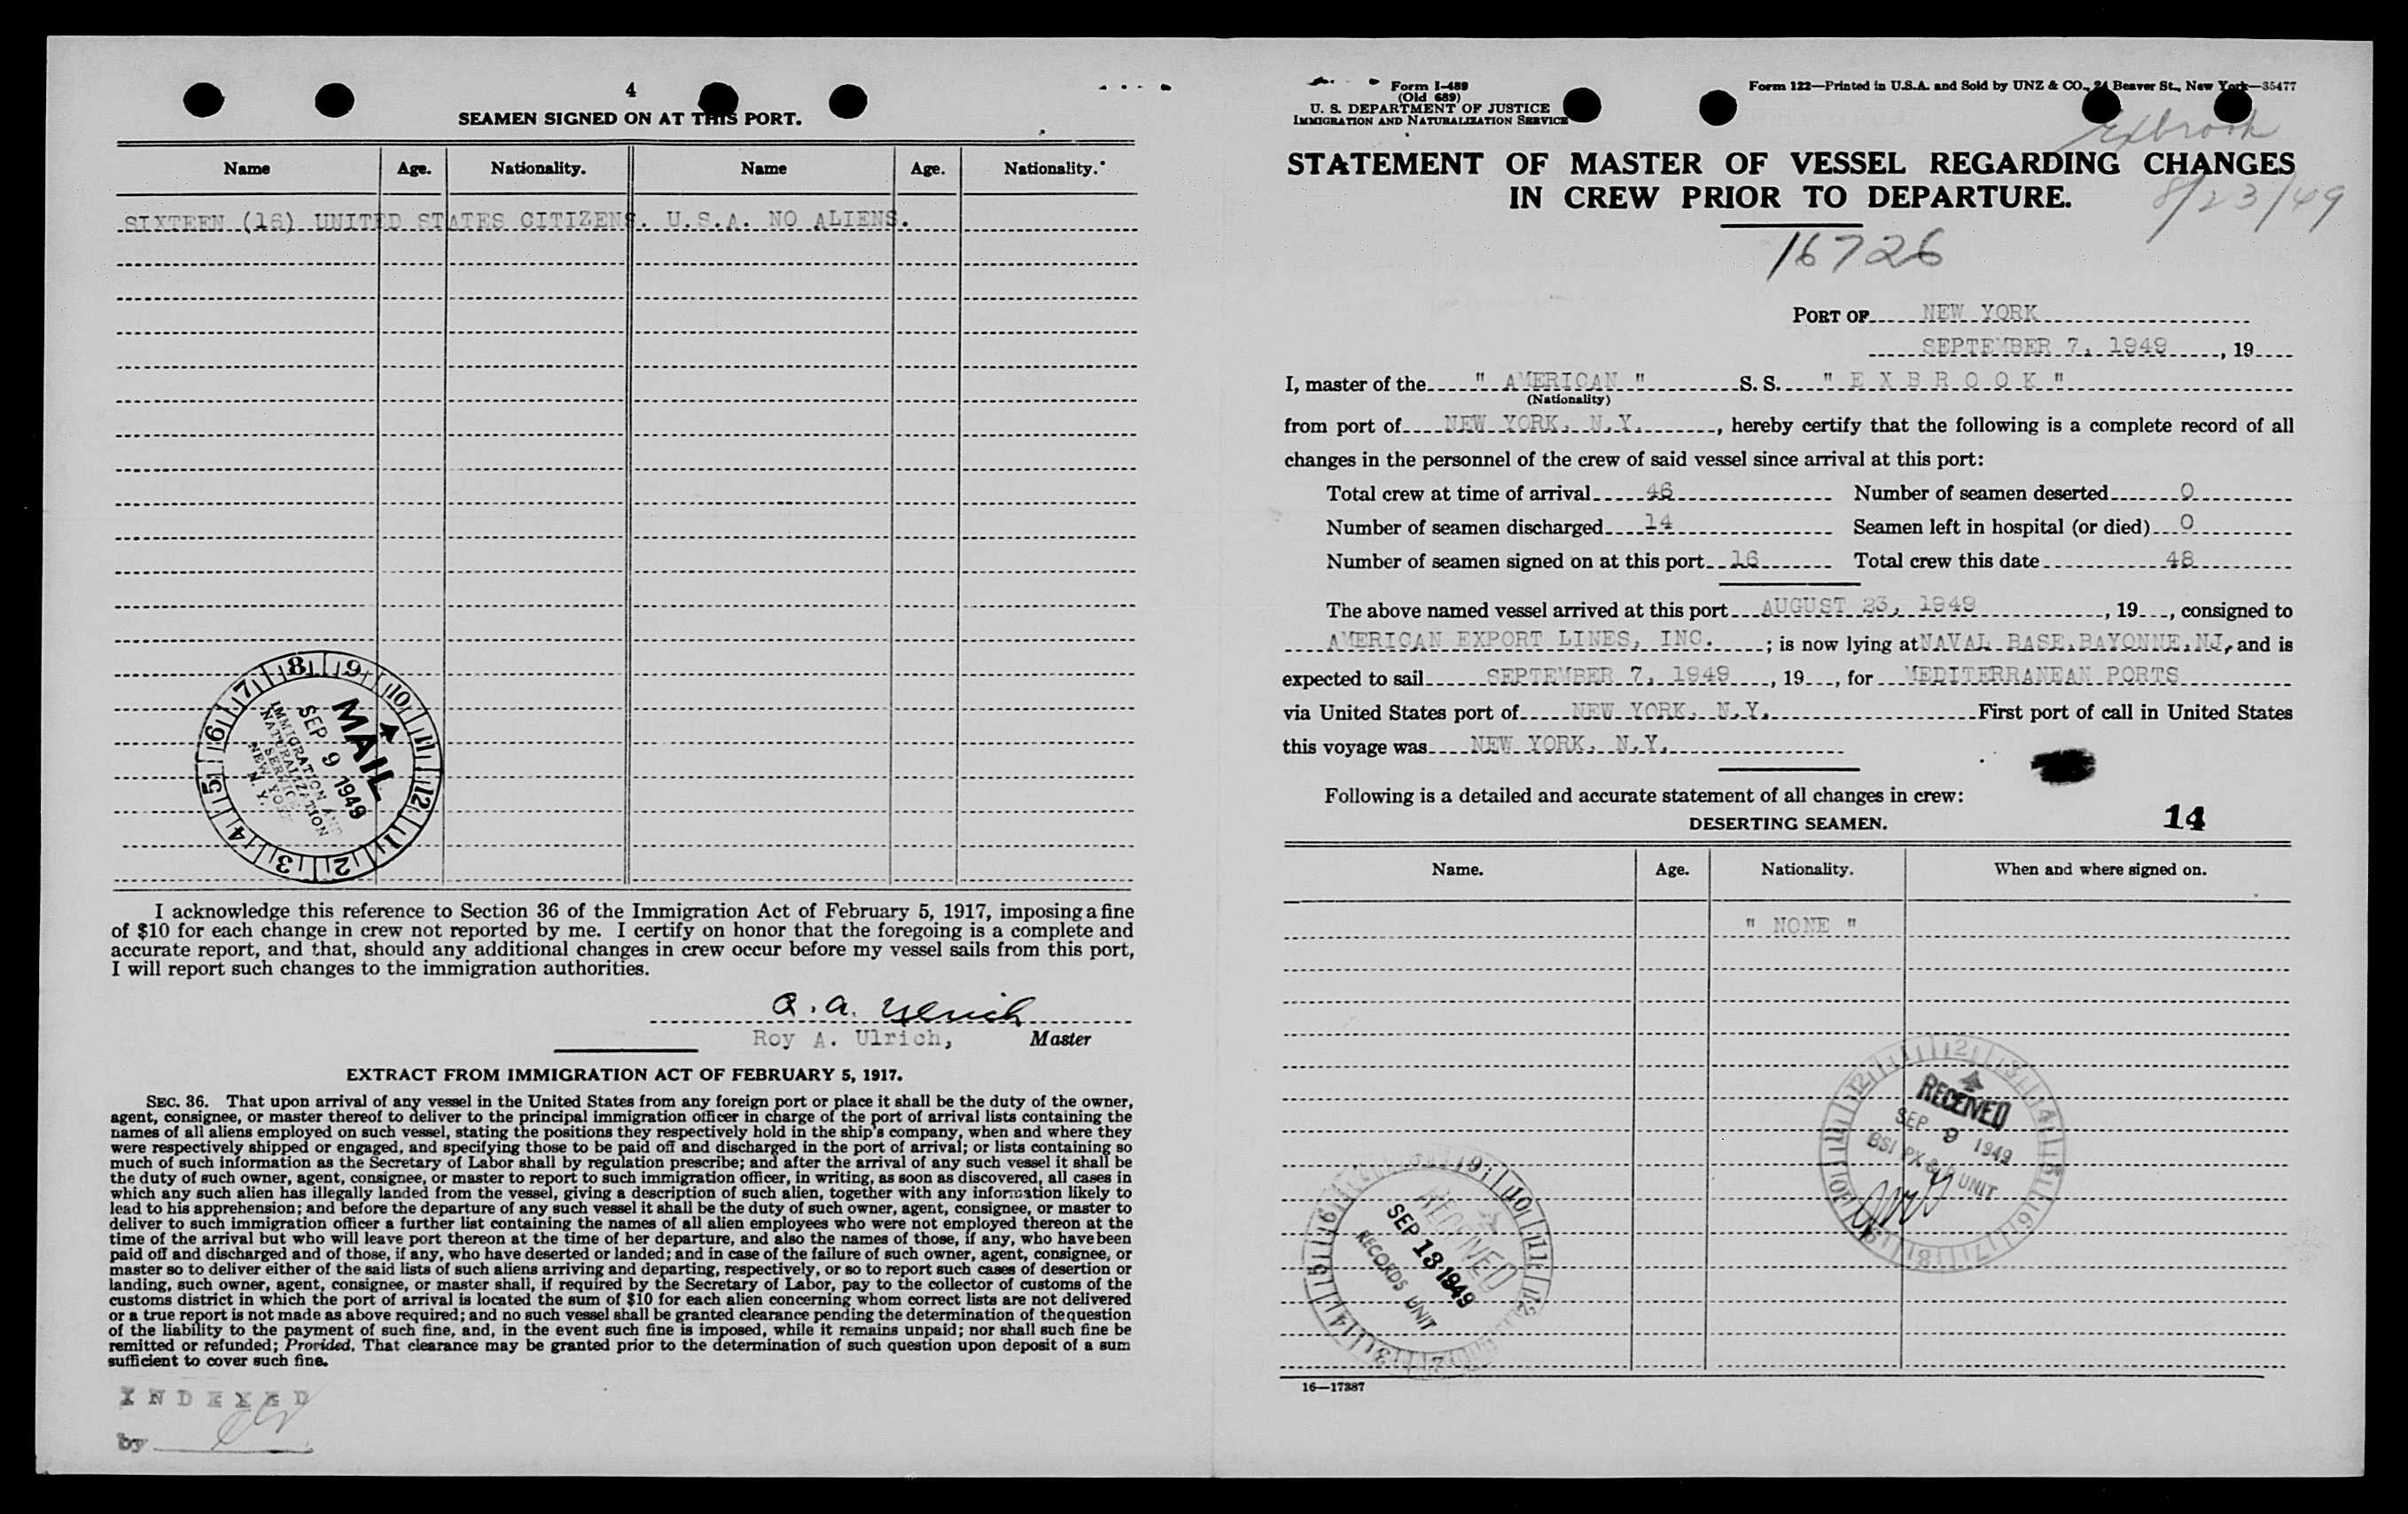 4
SEAMEN SIGNED ON AT THIS PORT.
Name Age. Nationality. Name Age. Nationality.
SIXTEEN (16) UNITED STATES CITIZENS. U.S.A. NO ALIENS.
8 9 10 11 12 1 2 3 4 5 6 7
MAIL
SEP 9 1949
IMMIGRATION AND
NATURALIZATION
SERVICE
NEW YORK
N. Y.
I acknowledge this reference to Section 36 of the Immigration Act of February 5, 1917, imposing a fine
of $10 for each change in crew not reported by me. I certify on honor that the foregoing is a complete and
accurate report, and that, should any additional changes in crew occur before my vessel sails from this port,
I will report such changes to the immigration authorities.
R. A. Ulrich
Roy A. Ulrich, Master
EXTRACT FROM IMMIGRATION ACT OF FEBRUARY 5, 1917.
SEC. 36. That upon arrival of any vessel in the United States from any foreign port or place it shall be the duty of the owner,
agent, consignee, or master thereof to deliver to the principal immigration officer in charge of the port of arrival lists containing the
names of all aliens employed on such vessel, stating the positions they respectively hold in the ship's company, when and where they
were respectively shipped or engaged, and specifying those to be paid off and discharged in the port of arrival; or lists containing so
much of such information as the Secretary of Labor shall by regulation prescribe; and after the arrival of any such vessel it shall be
the duty of such owner, agent, consignee, or master to report to such immigration officer, in writing, as soon as discovered, all cases in
which any such alien has illegally landed from the vessel, giving a description of such alien, together with any information likely to
lead to his apprehension; and before the departure of any such vessel it shall be the duty of such owner, agent, consignee, or master to
deliver to such immigration officer a further list containing the names of all alien employees who were not employed thereon at the
time of the arrival but who will leave port thereon at the time of her departure, and also the names of those, if any, who have been
paid off and discharged and of those, if any, who have deserted or landed; and in case of the failure of such owner, agent, consignee, or
master so to deliver either of the said lists of such aliens arriving and departing, respectively, or so to report such cases of desertion or
landing, such owner, agent, consignee, or master shall, if required by the Secretary of Labor, pay to the collector of customs of the
customs district in which the port of arrival is located the sum of $10 for each alien concerning whom correct lists are not delivered
or a true report is not made as above required; and no such vessel shall be granted clearance pending the determination of the question
of the liability to the payment of such fine, and, in the event such fine is imposed, while it remains unpaid; nor shall such fine be
remitted or refunded; Provided, That clearance may be granted prior to the determination of such question upon deposit of a sum
sufficient to cover such fine.
INDEXED
by
Form I-489
(Old 689)
U. S. DEPARTMENT OF JUSTICE
IMMIGRATION AND NATURALIZATION SERVICE
Form 122—Printed in U.S.A. and Sold by UNZ & CO., 24 Beaver St., New York—35477
Exbrook
STATEMENT OF MASTER OF VESSEL REGARDING CHANGES
IN CREW PRIOR TO DEPARTURE.
8/23/49
16726
PORT OF NEW YORK
SEPTEMBER 7, 1949, 19
I, master of the " AMERICAN " S. S. " E X B R O O K "
(Nationality)
from port of NEW YORK, N.Y., hereby certify that the following is a complete record of all
changes in the personnel of the crew of said vessel since arrival at this port:
Total crew at time of arrival 46 Number of seamen deserted 0
Number of seamen discharged 14 Seamen left in hospital (or died) 0
Number of seamen signed on at this port 16 Total crew this date 48
The above named vessel arrived at this port AUGUST 23, 1949, 19, consigned to
AMERICAN EXPORT LINES, INC.; is now lying at NAVAL BASE, BAYONNE, NJ, and is
expected to sail SEPTEMBER 7, 1949, 19, for MEDITERRANEAN PORTS
via United States port of NEW YORK, N.Y. First port of call in United States
this voyage was NEW YORK, N.Y.
Following is a detailed and accurate statement of all changes in crew:
DESERTING SEAMEN. 14
Name. Age. Nationality. When and where signed on.
" NONE "
RECEIVED
SEP 9 1949
BSI PX & UNIT
RECEIVED
SEP 13 1949
RECORDS UNIT
16—17387